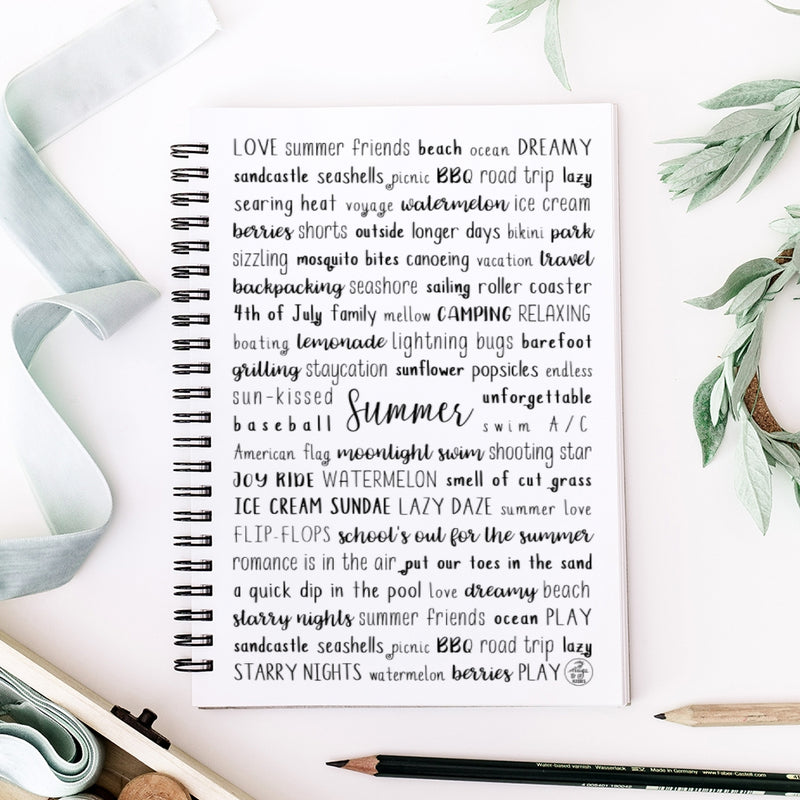 LOVE summer friends beach ocean DREAMY
sandcastle seashells picnic BBQ road trip lazy
searing heat voyage watermelon ice cream
berries shorts outside longer days bikini park
sizzling mosquito bites canoeing vacation travel
backpacking seashore sailing roller coaster
4th of July family mellow CAMPING RELAXING
boating lemonade lightning bugs barefoot
grilling staycation sunflower popsicles endless
sun-kissed unforgettable
Summer
baseball swim A/C
American flag moonlight swim shooting star
JOY RIDE WATERMELON smell of cut grass
ICE CREAM SUNDAE LAZY DAZE summer love
FLIP-FLOPS school's out for the summer
romance is in the air put our toes in the sand
a quick dip in the pool love dreamy beach
starry nights summer friends ocean PLAY
sandcastle seashells picnic BBQ road trip lazy
STARRY NIGHTS watermelon berries PLAY
Water-based varnish Wasserlack Made in Germany www.Faber-Castell.com